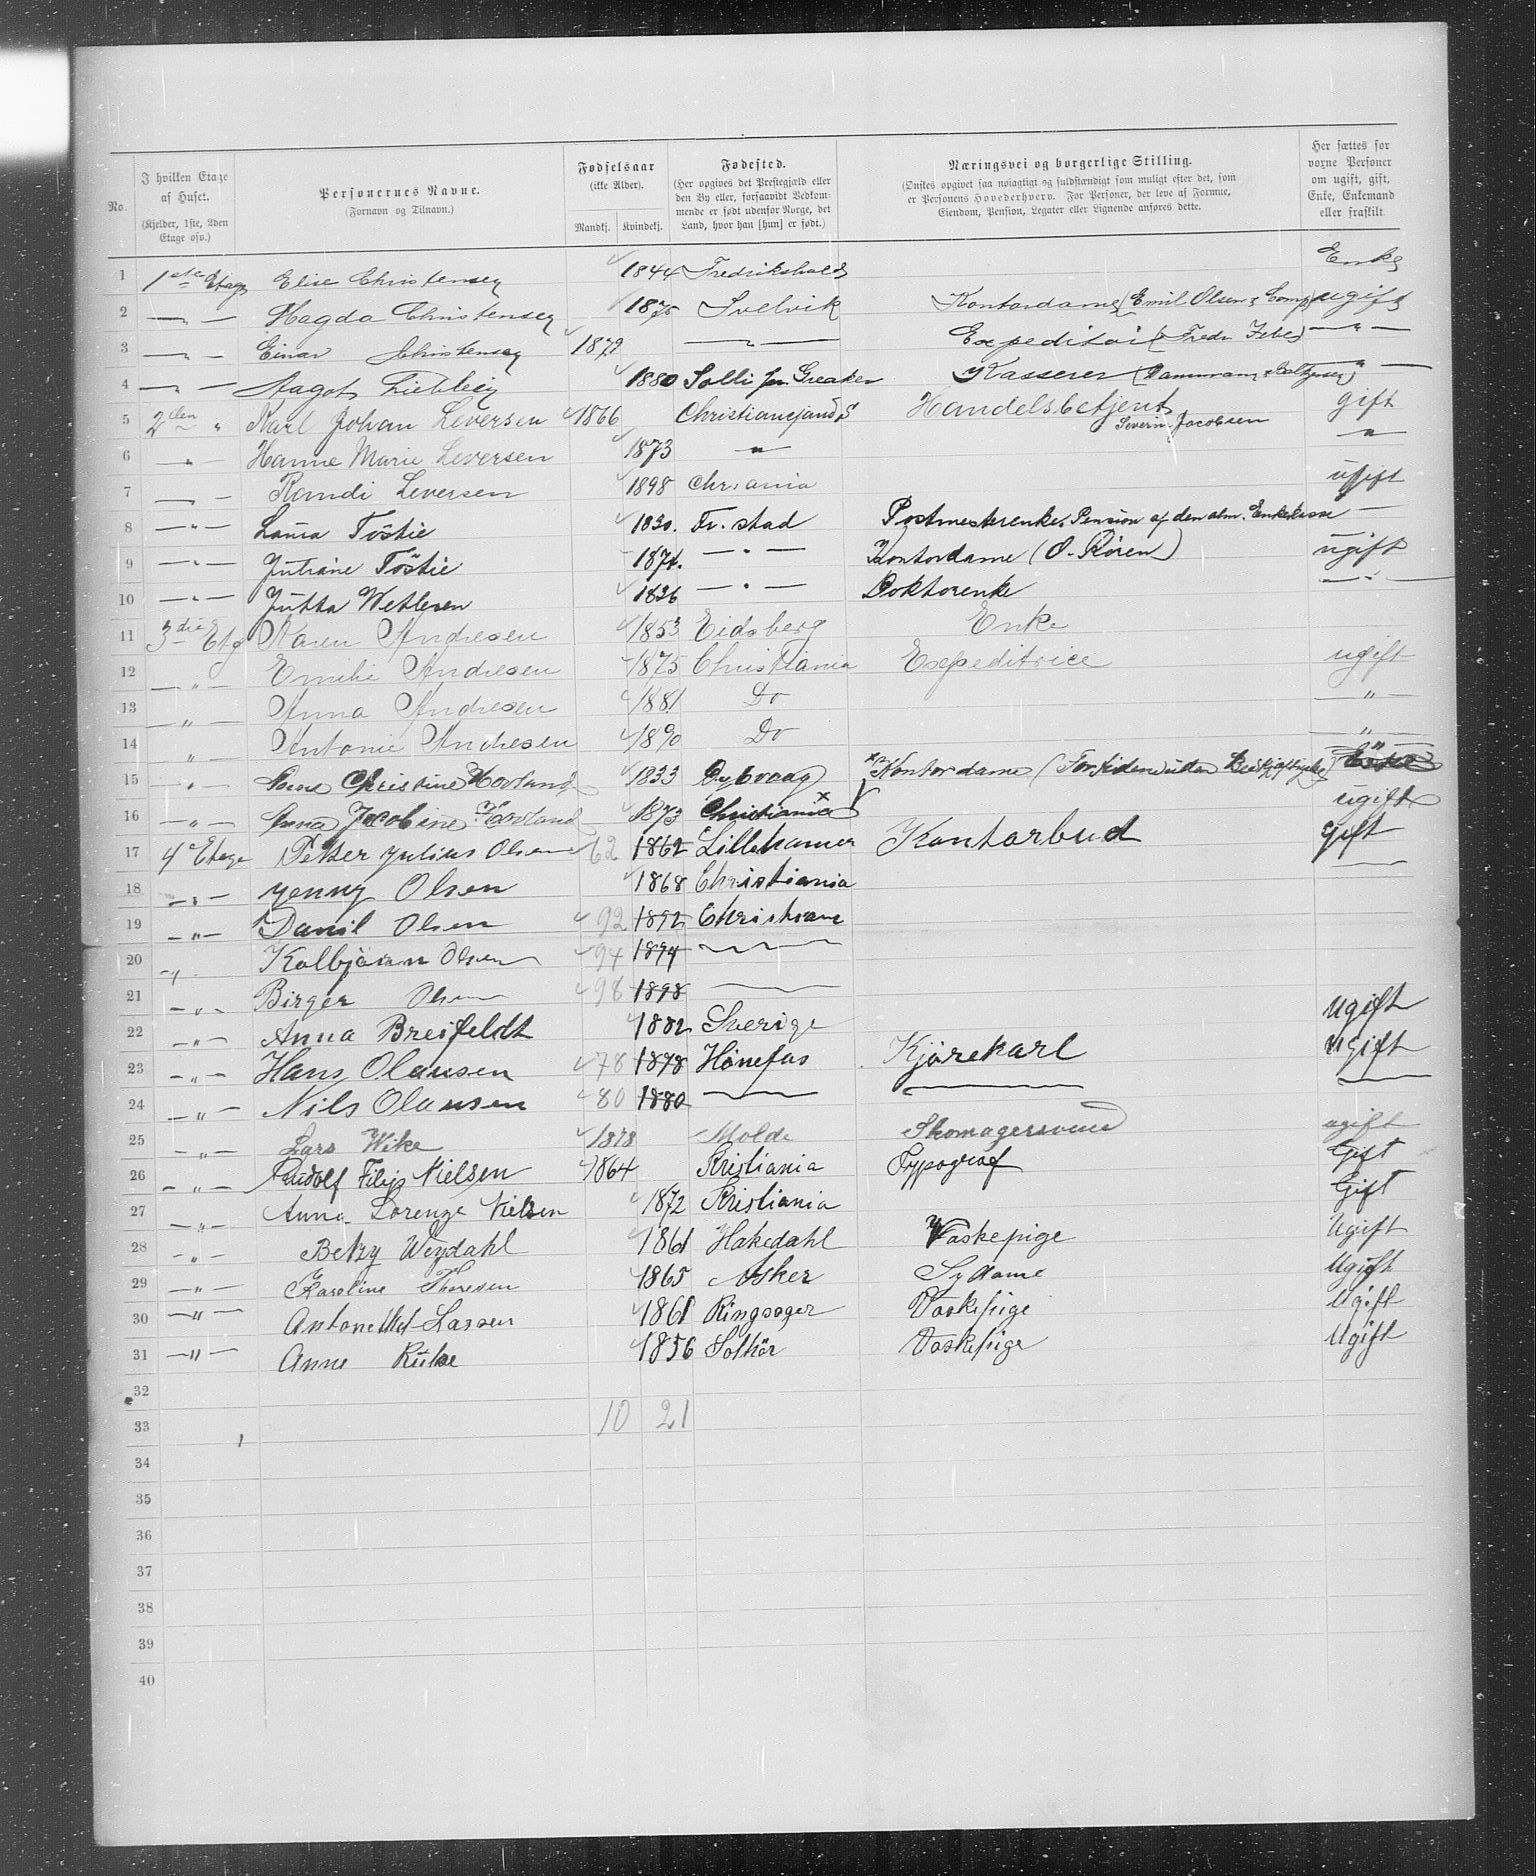 No. I hvilken Etage af Huset. (Kjelder, 1ste, 2den Etage osv.) Personernes Navne. (Fornavn og Tilnavn.) Fødselsaar (ikke Alder). Mandkj. Kvindekj. Fødested. (Her opgives det Prestegjæld eller den By eller, forsaavidt Vedkommende er født udenfor Norge, det Land, hvor han [hun] er født.) Næringsvei og borgerlige Stilling. (Ønskes opgivet saa nøiagtigt og fuldstændigt som muligt efter det, som er Personens Hovederhverv. For Personer, der leve af Formue, Eiendom, Pension, Legater eller Lignende anføres dette. Her sættes for voxne Personer om ugift, gift, Enke, Enkemand eller fraskilt.
1 1ste Etage Elise Christensen 1844 Fredrikshald Enke
2 — " — Magda Christensen 1875 Svelvik Kontordame (Emil Olsen & Comp) ugift
3 — " — Einar Christensen 1879 — " — Expeditør (Fredr. — " —
4 — " — Aagot 1880 Solli pr Greaker Kasserer — " —
5 2den " Karl Johan Leversen 1866 Christianssands Handelsbetjent Severin Jacobsen gift
6 — " — Hanne Marie Leversen 1873 — " — — " —
7 — " — Randi Leversen 1898 Chr.ania ugift
8 — " — Laura Tostie 1830. Fr. stad Postmesterenke, Pension af den alm. Enkekasse —
9 — " — Juliane Tostie 1874. — " — Kontordame (O. Røren) ugift
10 — " — Jutta Wetlesen 1826 — " — Doktorenke — " —
11 3die Etg Karen Andresen 1853 Eidsberg Enke
12 — " — Emilie Andresen 1875 Christiania Expeditrice ugift
13 — " — Anna Andresen 1881 Do — " —
14 " Antonie Andresen 1890 Do — " —
15 — " — Christine Hovland 1833 Dybvaag
16 — " — Anna Jacobine Hovland 1873 Christiania x x Kontordame (Fortiden uden Beskjæftigelse) ugift
17 4de Etage Petter Julius Olsen 62 1862 Lillehamer Kontorbud gift
18 — " — Yenny Olsen 1868 Christiania —
19 — " — Danil Olsen 92 1892 Christiania
20 — " — Kolbjørn Olsen 94 1894 —
21 — " — Birger Olsen 98 1898 —
22 — " — Anna Breifeldt 1882 Sverige Ugift
23 — " — Hans Olausen 78 1878 Hønefos Kjørekarl Ugift
24 — " — Nils Olausen 80 1880 — — —
25 — " — Lars Wike 1878 Molde Skomagersvend ugift
26 — " — Rudolf Filip Nielsen 1864 Kristiania Typograf Gift
27 — " — Anna Lorenze Nielsen 1872 Kristiania Gift
28 — " — Betzy Weydahl 1861 Hakedahl Vaskepige Ugift
29 — " — Karoline Thoresen 1865 Asker Sydame Ugift
30 — " — Antonette Larsen 1861 Ringsager Vaskepige Ugift
31 — " — Anne 1856 Solhör Vaskepige Ugift
32
33 10 21
34
35
36
37
38
39
40